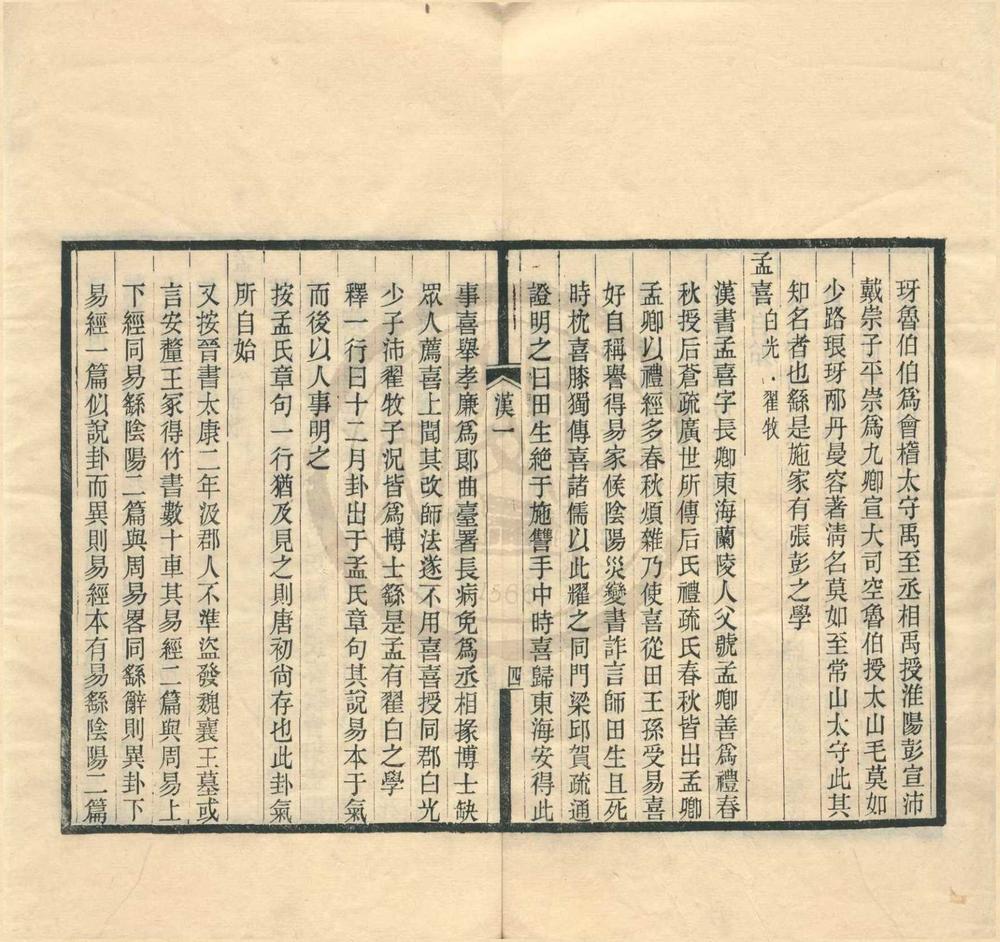 玡魯伯伯爲會稽太守禹至丞相禹授淮陽彭宣沛
戴崇子平崇爲九卿宣大司空魯伯授太山毛莫如
少路琅玡邴丹曼容著淸名莫如至常山太守此其
知名者也繇是施家有張彭之學
孟喜 白光 · 翟牧
漢書孟喜字長卿東海蘭陵人父號孟卿善爲禮春
秋授后蒼疏廣世所傳后氏禮疏氏春秋皆出孟卿
孟卿以禮經多春秋煩雜乃使喜從田王孫受易喜
好自稱譽得易家候陰陽災變書詐言師田生且死
時枕喜膝獨傳喜諸儒以此耀之同門梁邱賀疏通
證明之曰田生絶于施讐手中時喜歸東海安得此
漢一
四
事喜舉孝廉爲郎曲臺署長病免爲丞相掾博士缺
眾人薦喜上聞其改師法遂不用喜喜授同郡白光
少子沛翟牧子况皆爲博士繇是孟有翟白之學
釋一行曰十二月卦出于孟氏章句其說易本于氣
而後以人事明之
按孟氏章句一行猶及見之則唐初尙存也此卦氣
所自始
又按晉書太康二年汲郡人不準盜發魏襄王墓或
言安釐王冢得竹書數十車其易經二篇與周易上
下經同易繇陰陽二篇與周易畧同繇辭則異卦下
易經一篇似說卦而異則易經本有易繇陰陽二篇